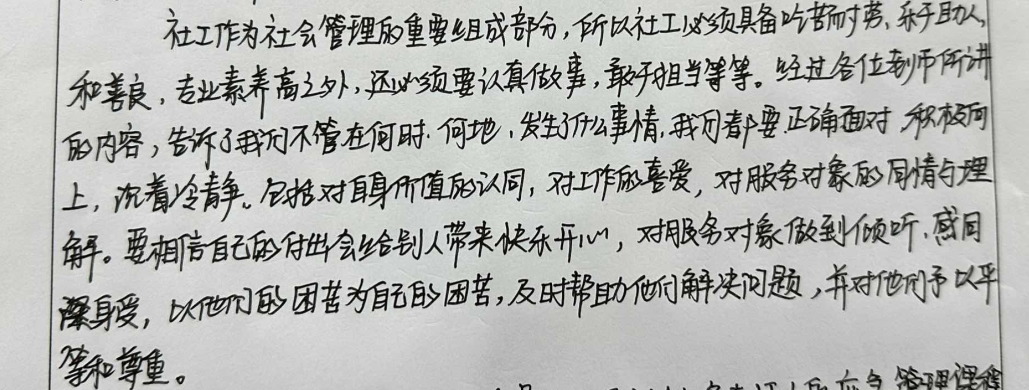 社工作为社会管理的重要组成部分,所以社工必须具备吃苦耐劳、乐于助人
和善良,专业素养高之外,还必须要认真做事,敢于担当等等。经过各位老师所讲
的内容,告诉了我们不管在何时、何地,发生了什么事情,我们都要正确面对,积极向
上,沉着冷静。包括对自身价值的认同,对工作的喜爱,对服务对象的同情与理
解。要相信自己的付出会给别人带来快乐开心,对服务对象做到倾听、感同
身受,以他们的困苦为自己的困苦,及时帮助他们解决问题,并对他们予以平
等和尊重。
应急管理课程